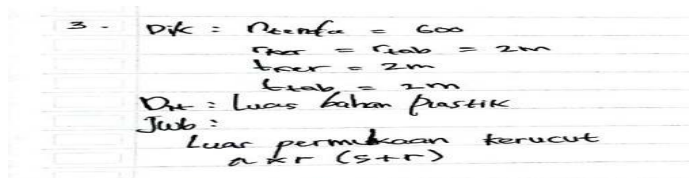 3. Dik : ntenda = 600
rker = rtab = 2m
tker = 2m
ttab = 2m
Dit : Luas bahan plastik
Jwb :
Luas permukaan kerucut
(s+r)